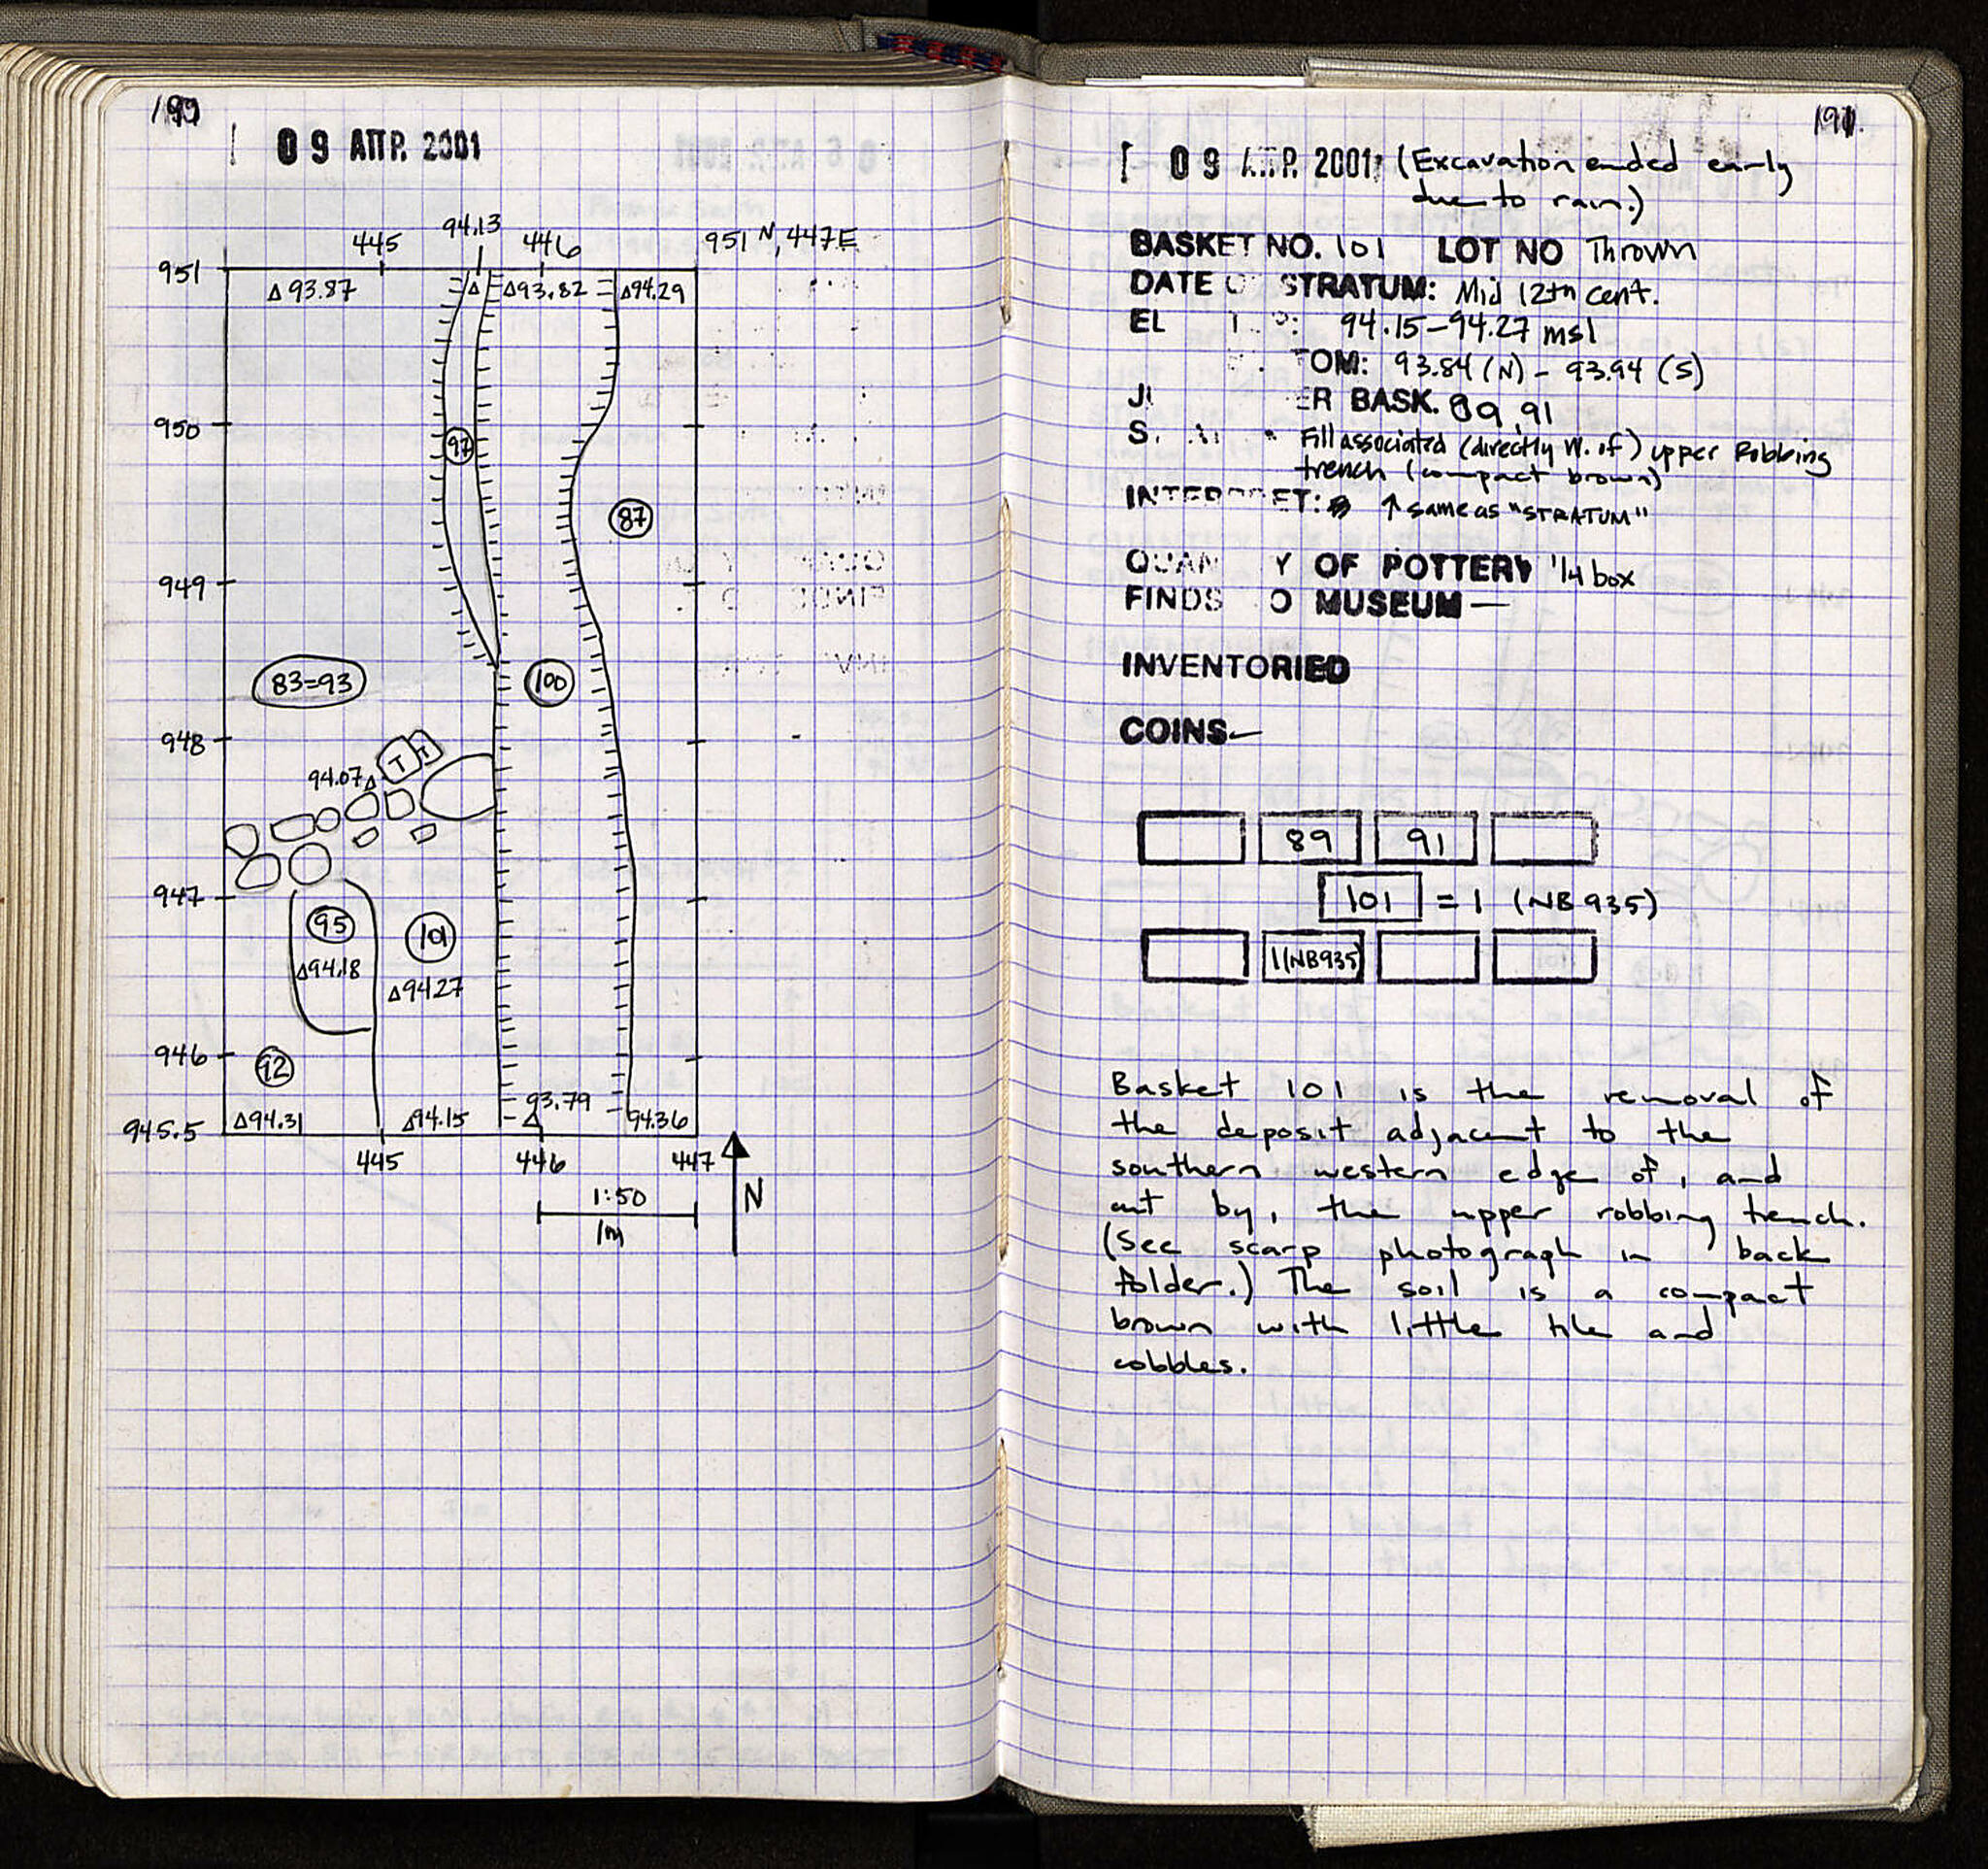 09 ΑΠΡ. 2001
94.13
445 446 951 N, 447E
951
Δ93.87 Δ Δ93.82 Δ94.29
950
97
87
949
83=93 100
948
T T
94.07Δ
947
95 101
Δ94.18
Δ94.27
946
92
93.79
945.5 Δ94.31 Δ94.15 Δ 94.36
445 446 447
1:50 N
1m
191.
09 Α.Π.Ρ. 2001 (Excavation ended early
due to rain.)
BASKET NO. 101 LOT NO Thrown
DATE O STRATUM: Mid 12th cent.
EL : 94.15-94.27 msl
TOM: 93.84 (N) - 93.94 (S)
ER BASK. 89, 91
Fill associated (directly W. of) upper Robbing
trench (compact brown)
INTERPRET: ↑ same as "STRATUM"
QUAN Y OF POTTERY 1/4 box
FINDS O MUSEUM —
INVENTORIED
COINS —
89 91
101 = 1 (NB 935)
1(NB935)
Basket 101 is the removal of
the deposit adjacent to the
southern, western edge of, and
cut by, the upper robbing trench.
(See scarp photograph in back
folder.) The soil is a compact
brown with little tile and
cobbles.